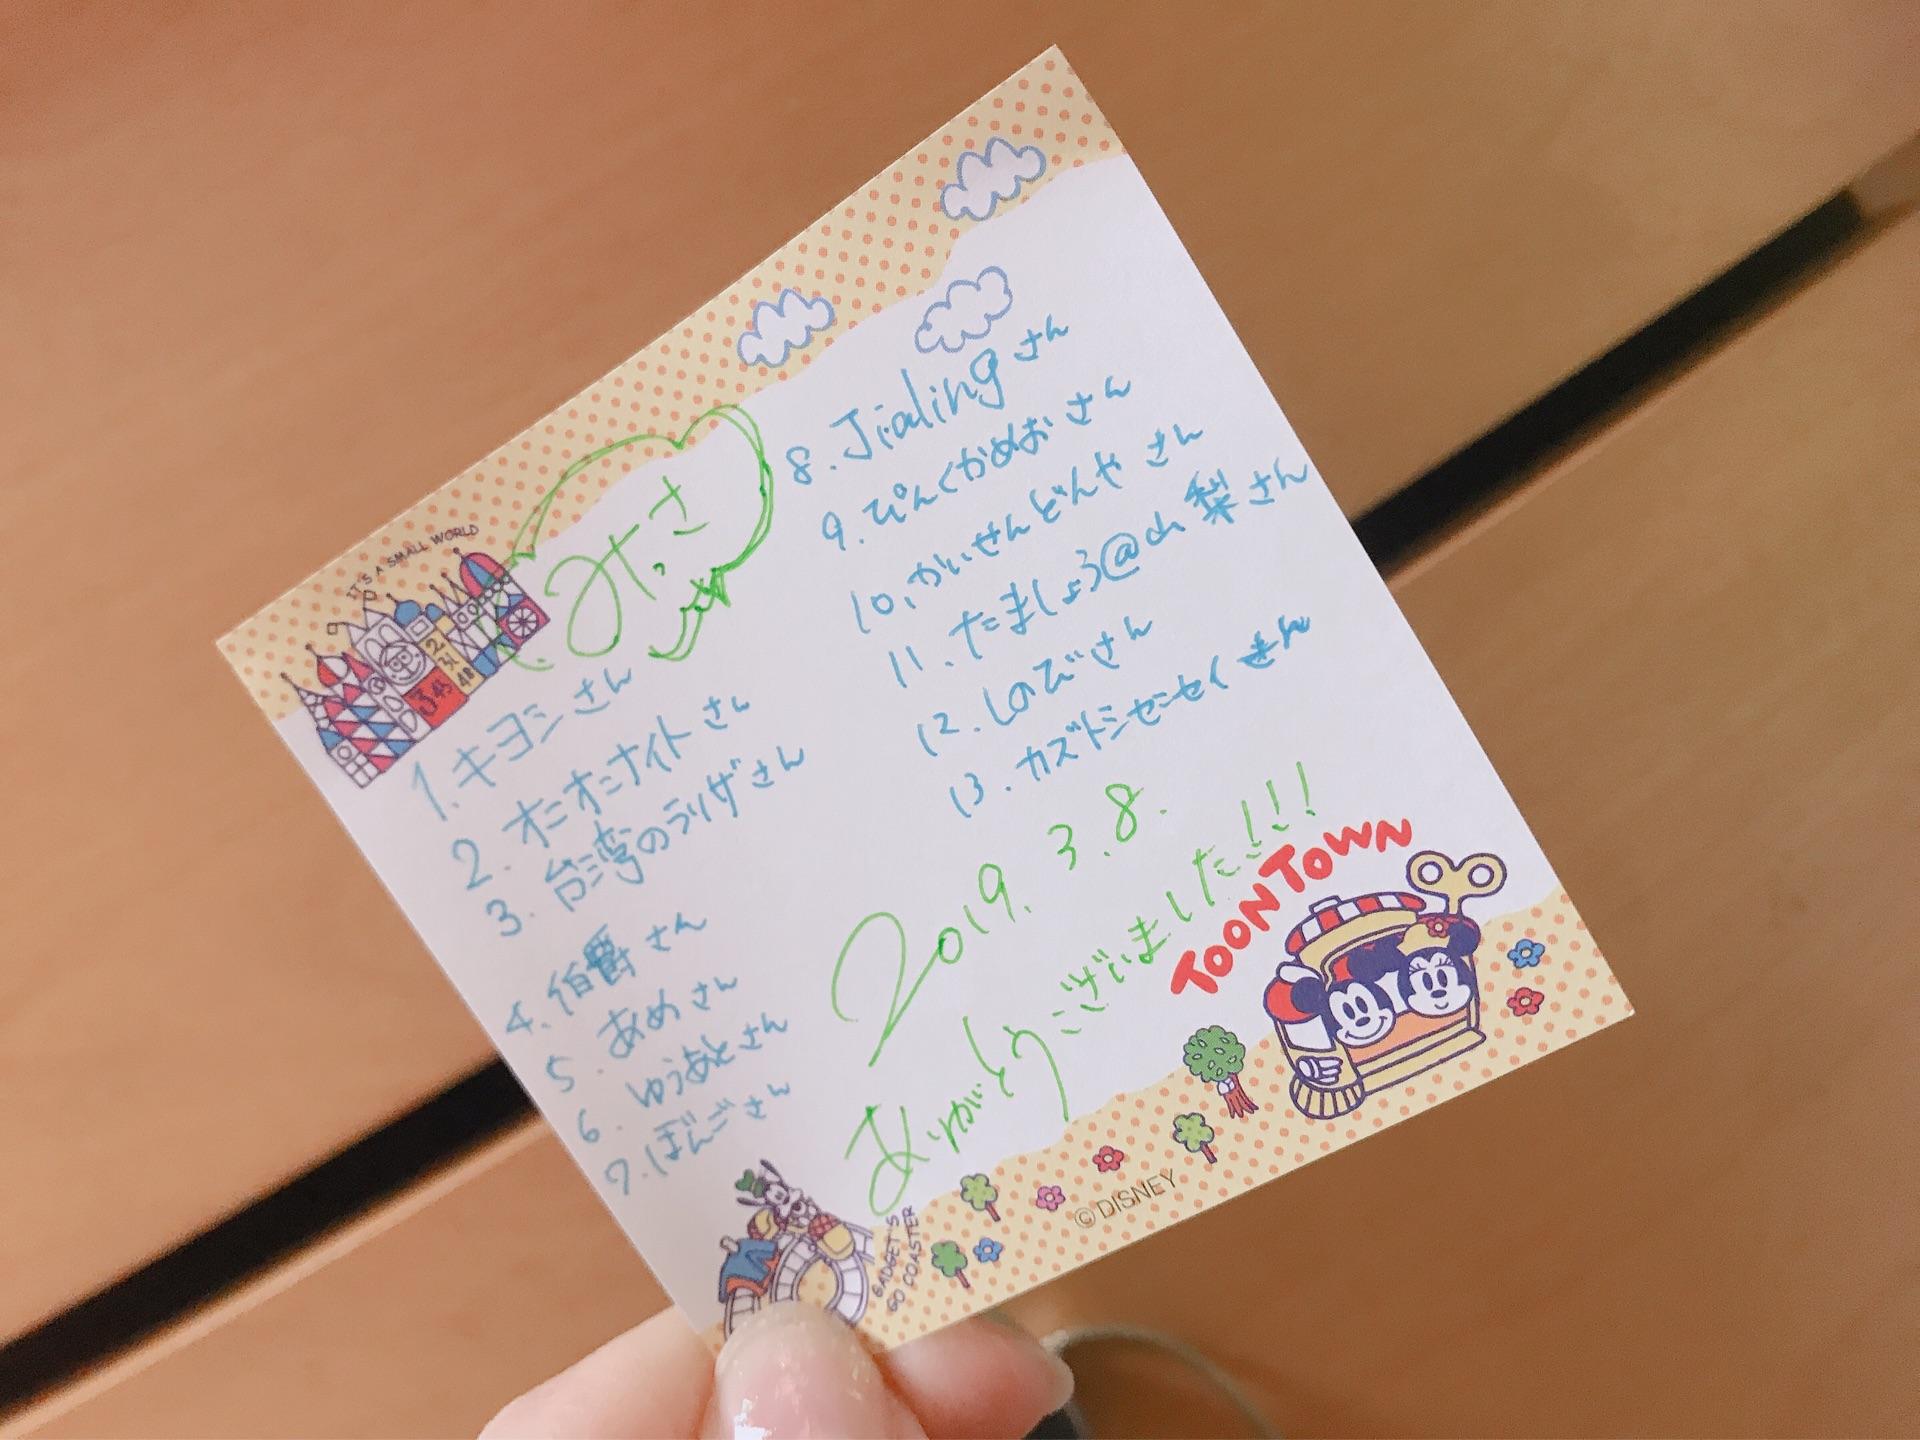 IT'S A SMALL WORLD
みっさ
1. キヨシさん
2. オニオニナイトさん
3. 台湾のラリザさん
4. 伯爵さん
5. あめさん
6. ゆうあとさん
7. ぽんごさん
8. Jialingさん
9. ぴんくかめおさん
10. かいせんどんやさん
11. たましょう@山梨さん
12. しのびさん
13. カズトシセンセイさん
2019.3.8.
ありがとうございました!!!
TOONTOWN
GADGET'S
GO COASTER
© DISNEY